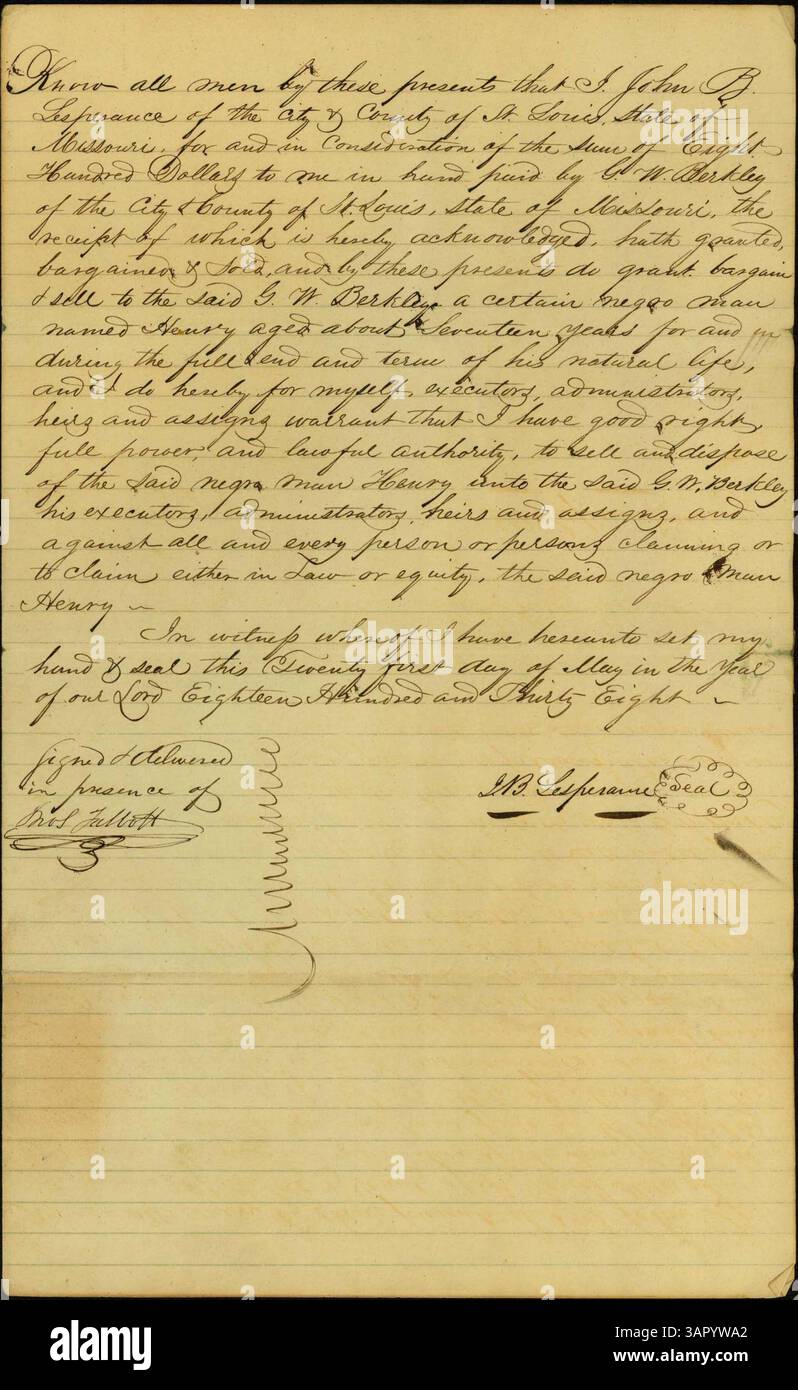 Know all men by these presents that I. John B.
Lesperance of the City & County of St. Louis, state of
Missouri, for and in consideration of the sum of Eight
Hundred Dollars to me in hand paid by G. W. Berkley
of the City & County of St. Louis, state of Missouri, the
receipt of which is hereby acknowledged, hath granted,
bargained & sold, and by these presents do grant bargain
& sell to the said G. W. Berkley a certain negro man
named Henry aged about Seventeen years for and in
during the full & end and term of his natural life,
and I do hereby for myself, executors, administrators,
heirs and assigns warrant that I have good right,
full power, and lawful authority, to sell and dispose
of the said negro man Henry unto the said G. W. Berkley
his executors, administrators, heirs and assigns, and
against all and every person or persons claiming or
to claim either in Law or equity, the said negro man
Henry ~
In witness whereof I have hereunto set my
hand & seal this Twenty first day of May in the year
of our Lord Eighteen Hundred and Thirty Eight ~
Signed & delivered
in presence of
Thos Talbott
J. B. Lesperance
Seal
alamy
alamy
Image ID: 3APYWA2
www.alamy.com